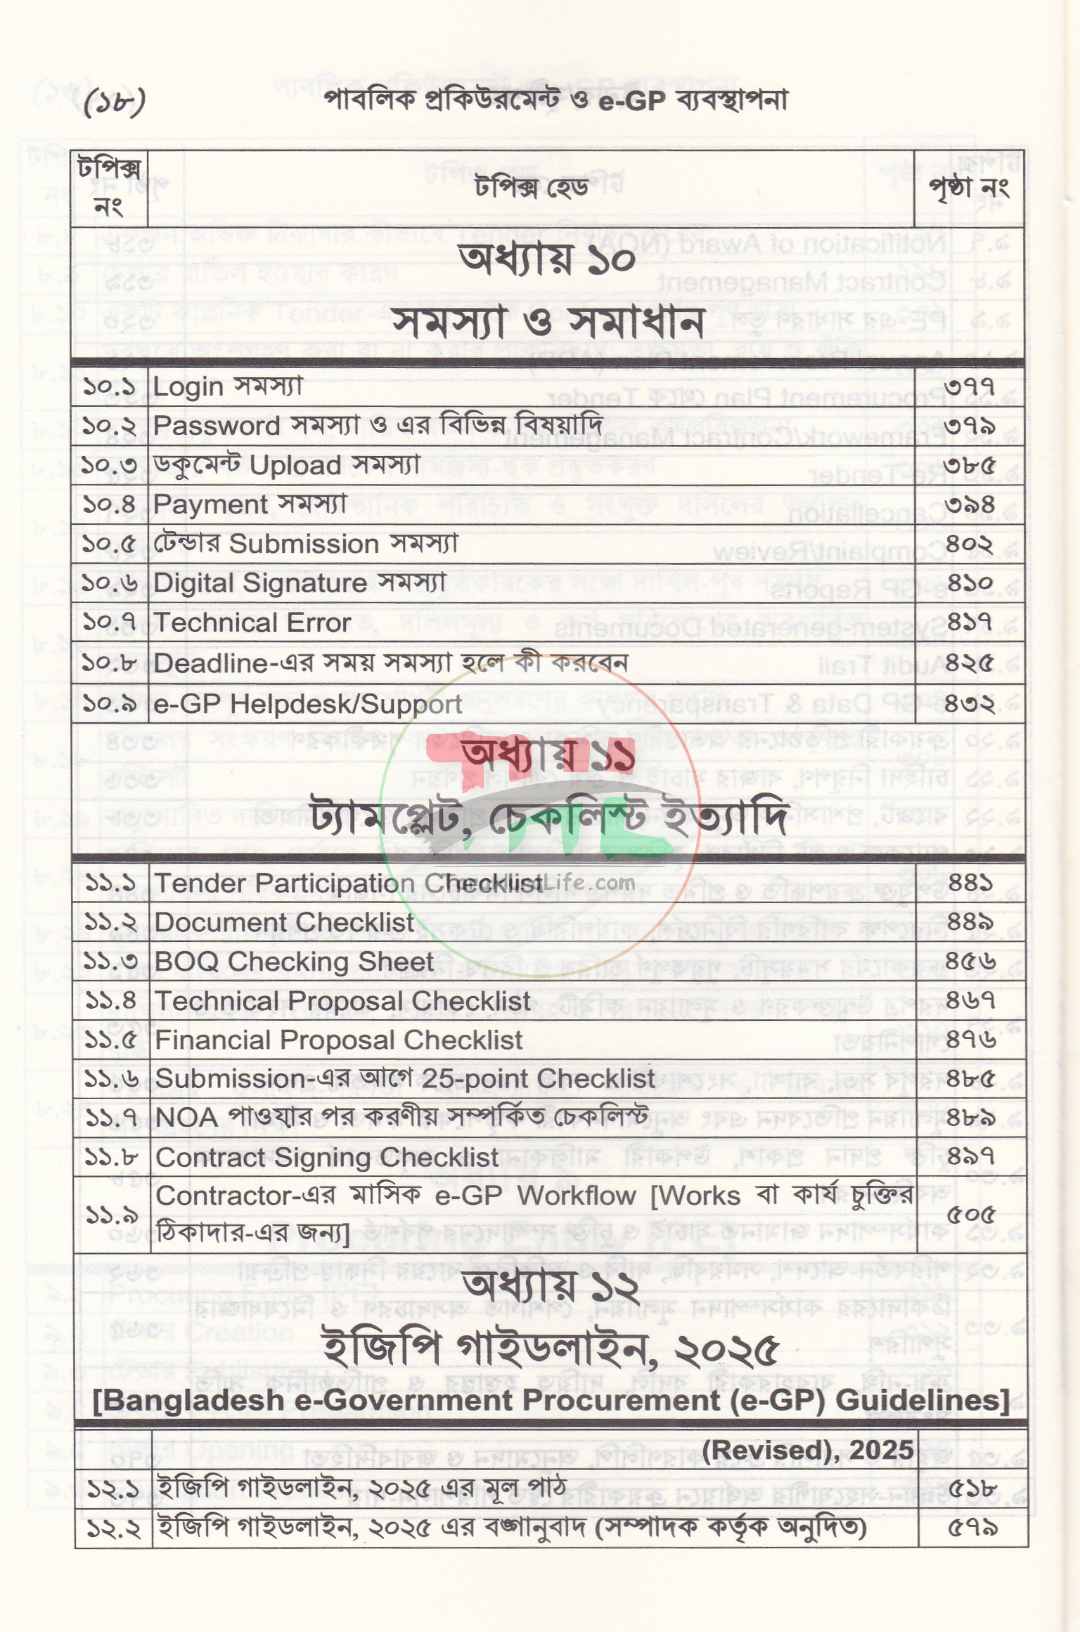 (১৮) পাবলিক প্রকিউরমেন্ট ও e-GP ব্যবস্থাপনা
টপিক্স নং টপিক্স হেড পৃষ্ঠা নং
অধ্যায় ১০
সমস্যা ও সমাধান
১০.১ Login সমস্যা ৩৭৭
১০.২ Password সমস্যা ও এর বিভিন্ন বিষয়াদি ৩৭৯
১০.৩ ডকুমেন্ট Upload সমস্যা ৩৮৫
১০.৪ Payment সমস্যা ৩৯৪
১০.৫ টেন্ডার Submission সমস্যা ৪০২
১০.৬ Digital Signature সমস্যা ৪১০
১০.৭ Technical Error ৪১৭
১০.৮ Deadline-এর সময় সমস্যা হলে কী করবেন ৪২৫
১০.৯ e-GP Helpdesk/Support ৪৩২
অধ্যায় ১১
ট্যামপ্লেট, চেকলিস্ট ইত্যাদি
১১.১ Tender Participation Checklist ৪৪১
১১.২ Document Checklist ৪৪৯
১১.৩ BOQ Checking Sheet ৪৫৬
১১.৪ Technical Proposal Checklist ৪৬৭
১১.৫ Financial Proposal Checklist ৪৭৬
১১.৬ Submission-এর আগে 25-point Checklist ৪৮৫
১১.৭ NOA পাওয়ার পর করণীয় সম্পর্কিত চেকলিস্ট ৪৮৯
১১.৮ Contract Signing Checklist ৪৯৭
১১.৯ Contractor-এর মাসিক e-GP Workflow [Works বা কার্য চুক্তির
ঠিকাদার-এর জন্য] ৫০৫
অধ্যায় ১২
ইজিপি গাইডলাইন, ২০২৫
[Bangladesh e-Government Procurement (e-GP) Guidelines]
(Revised), 2025
১২.১ ইজিপি গাইডলাইন, ২০২৫ এর মূল পাঠ ৫১৮
১২.২ ইজিপি গাইডলাইন, ২০২৫ এর বঙ্গানুবাদ (সম্পাদক কর্তৃক অনুদিত) ৫৭৯